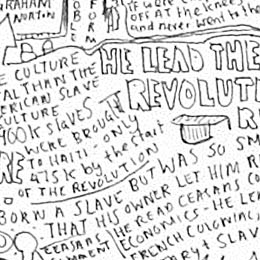 GRAHAM
NORTON
O
B
E
F
O
R
if were
OFF AT the knees
and never went to the
HE LEAD THE
REVOLUTI
CULTURE
AL THAN THE
ERICAN SLAVE
CULTURE
400k SLAVES
WERE BROUGHT
TO HAITI - only
425k by the start
OF THE REVOLUTION
BORN A SLAVE BUT WAS SO SM
THAT HIS OWNER LET HIM RE
HE READ CEASARS CO
ECONOMICS - HE LE
FRENCH COLONIAL
RY + SLAV
CEASARS